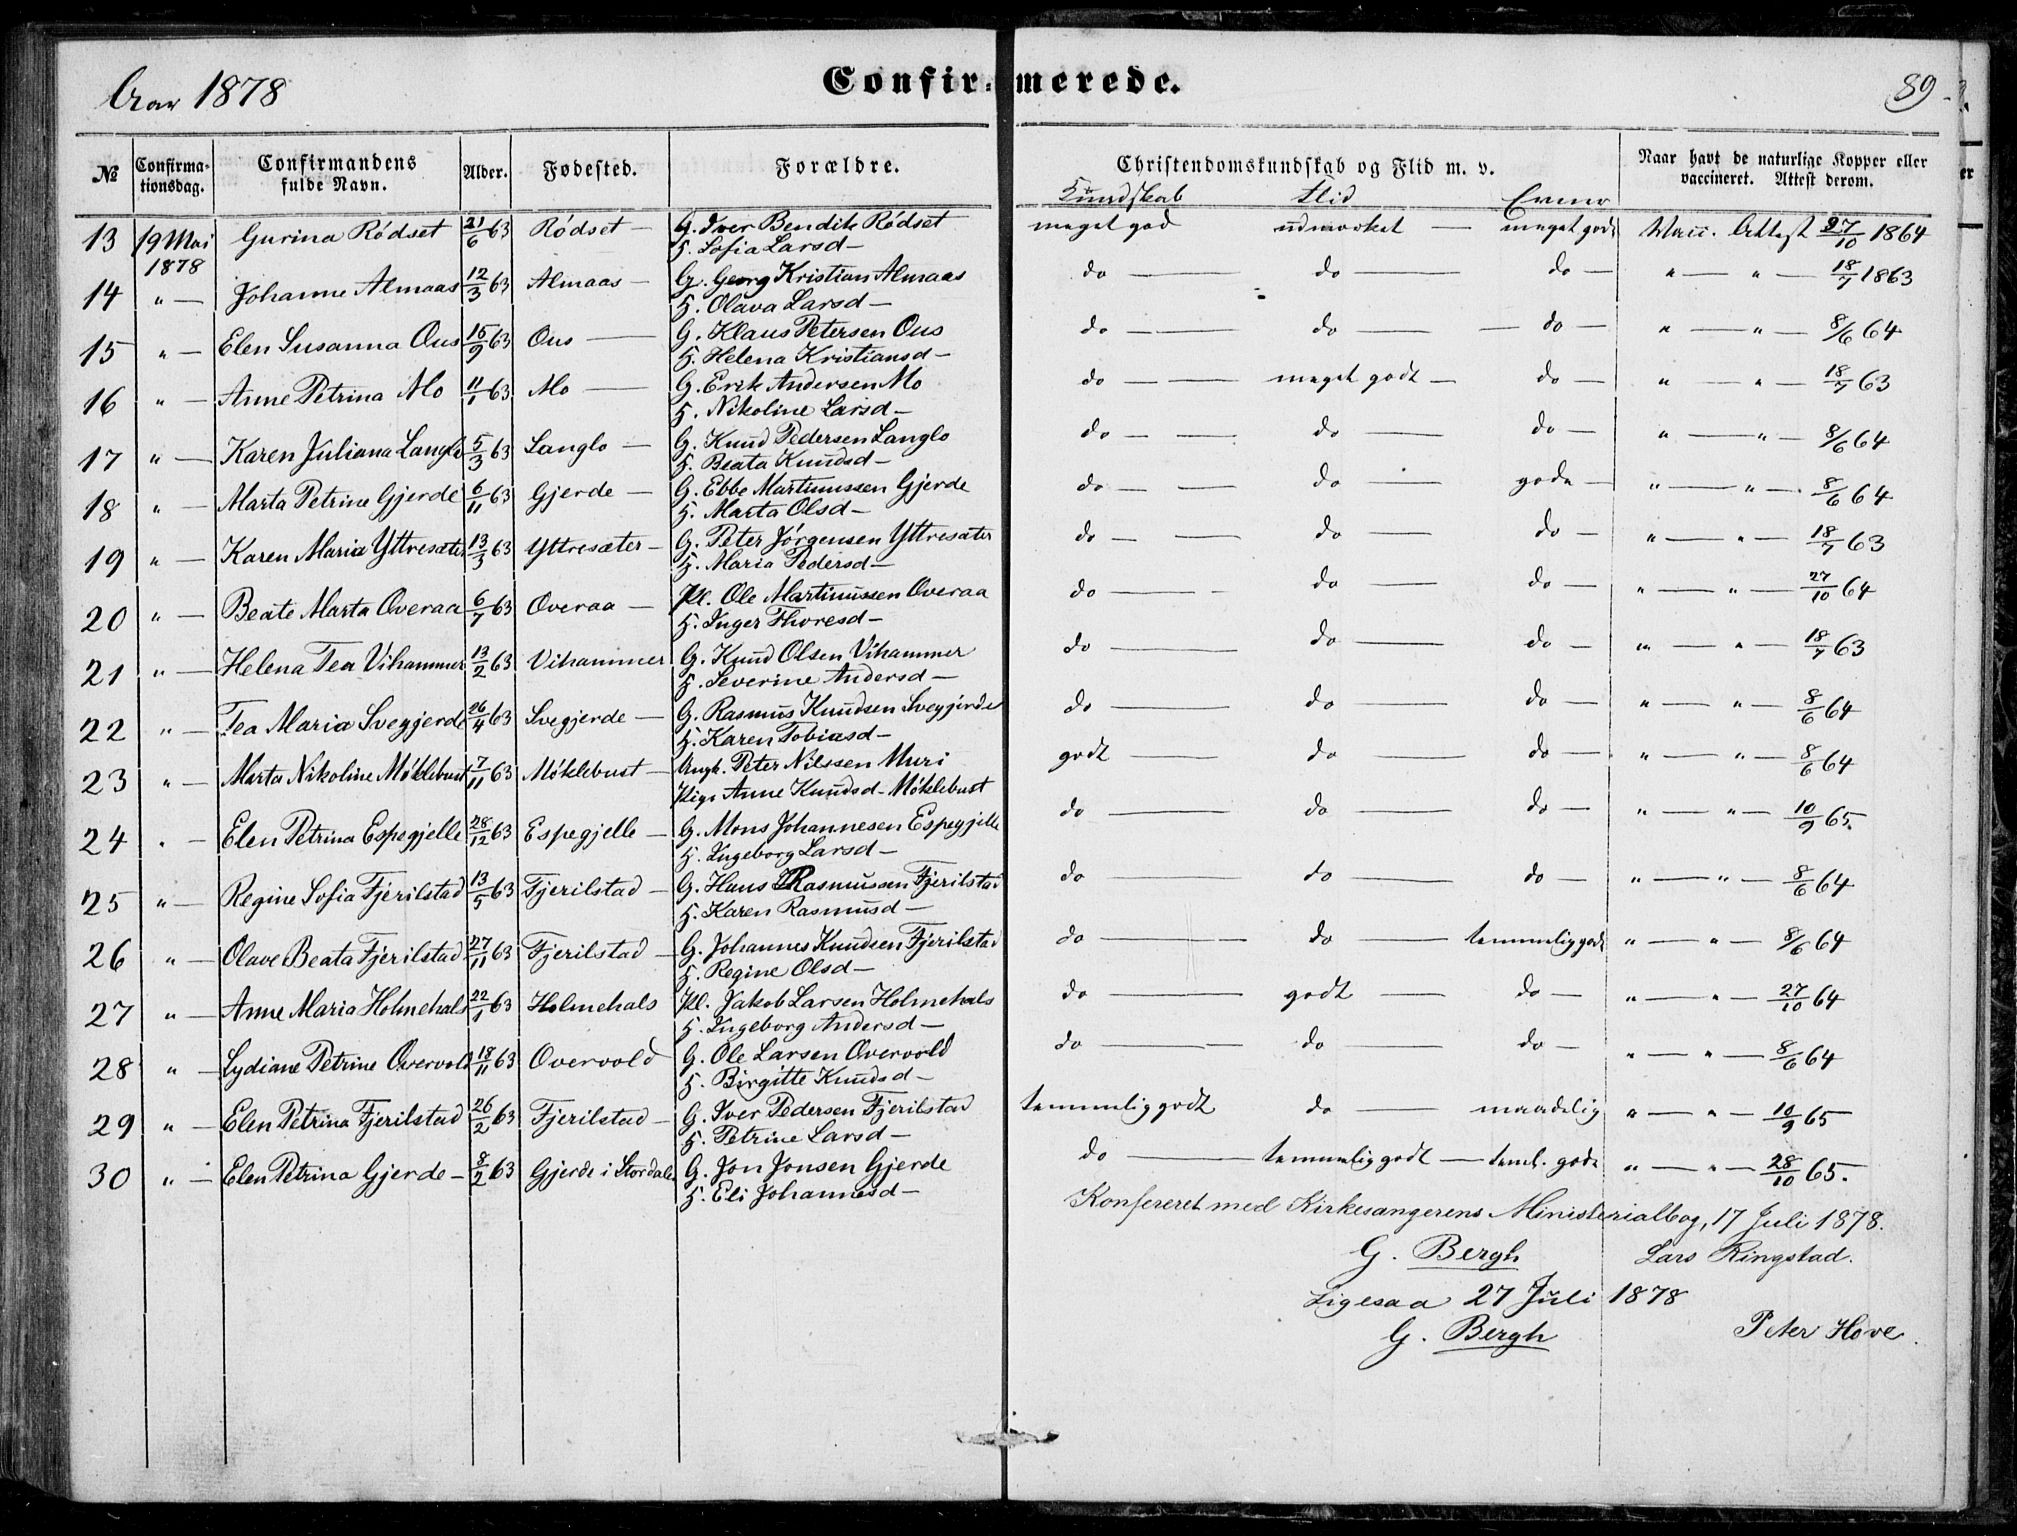 Aar 1878 Confirmerede. 89
№ Confirmationsdag. Confirmandens fulde Navn. Alder. Fødested. Forældre. Christendomskundskab og Flid m. v. Naar havt de naturlige Kopper eller vaccineret. Attest derom.
Kundskab Flid Evner
13 19 Mai 1878 Gurina Rødset 21/6 63 Rødset — G. Iver Bendik Rødset meget god udmærket — meget gode Vacc. Attest 27/10 1864
H. Sofia Larsd —
14 " — Johanne Almaas 12/3 63 Almaas — G. Georg Kristian Almaas do — do — do — " — " — 18/7 1863
H. Olava Larsd —
15 " — Elen Susanna Ous 15/9 63 Ous — G. Klaus Petersen Ous do — do — do — " — " — 8/6 64
H. Helena Kristiansd —
16 " — Anne Petrina Mo 11/1 63 Mo — G. Erik Andersen Mo do — meget godt — do — " — " — 18/7 63
H. Nikoline Larsd —
17 " — Karen Juliana Langlo 5/3 63 Langlo — G. Knud Pedersen Langlo do — do — do — " — " — 8/6 64
H. Beata Knudsd —
18 " — Marta Petrine Gjerde 6/11 63 Gjerde — G. Ebbe Martinussen Gjerde do — do — gode — " — " — 8/6 64
H. Marta Olsd —
19 " — Karen Maria Yttresæter 13/3 63 Yttresæter — G. Peter Jørgensen Yttresæter do — do — do — " — " — 18/7 63
H. Maria Pedersd —
20 " — Beate Marta Overaa 6/7 63 Overaa — Pl. Ole Martinussen Overaa do — do — do — " — " — 27/10 64
H. Inger Thoresd —
21 " — Helena Tea Vihammer 13/2 63 Vihammer G. Knud Olsen Vihammer do — do — do — " — " — 18/7 63
H. Severine Andersd —
22 " — Tea Maria Svegjerde 26/4 63 Svegjerde — G. Rasmus Knudsen Svegjerde do — do — do — " — " — 8/6 64
H. Karen Tobiasd —
23 " — Marta Nikoline Møklebust 7/11 63 Møklebust — Ungk. Peter Nilssen Muri godt — do — do — " — " — 8/6 64
Pige Anne Knudsd — Møklebust
24 " — Elen Petrina Espegjelle 28/12 63 Espegjelle — G. Mons Johannesen Espegjelle do — do — do — " — " — 10/9 65.
H. Ingeborg Larsd —
25 " — Regine Sofia Fjerilstad 13/5 63 Fjerilstad — G. Hans Rasmussen Fjerilstad do — do — do — " — " — 8/6 64
H. Karen Rasmusd —
26 " — Olave Beata Fjerilstad 27/11 63 Fjerilstad — G. Johannes Knudsen Fjerilstad do — do — temmelig gode " — " — 8/6 64
H. Regine Olsd —
27 " — Anne Maria Holmehals 22/1 63 Holmehals Pl. Jakob Larsen Holmehals do — godt — do — " — " — 27/10 64
H. Ingeborg Andersd —
28 " — Lydiane Petrine Overvold 18/11 63 Overvold G. Ole Larsen Overvold do — do — do — " — " — 8/6 64
H. Birgitte Knudsd —
29 " — Elen Petrina Fjerilstad 26/2 63 Fjerilstad — G. Iver Pedersen Fjerilstad temmelig godt do — maadelig " — " — 10/9 65
H. Petrine Larsd —
30 " — Elen Petrina Gjerde — 8/2 63 Gjerde i Stordalen G. Jon Jonsen Gjerde do — temmelig godt — teml. gode " — " — 28/10 65.
H. Eli Johannesd —
Konfereret med Kirkesangerens Ministerialbog, 17 Juli 1878.
G. Bergh Lars Ringstad.
Ligesaa 27 Juli 1878
G. Bergh Peter Hove.